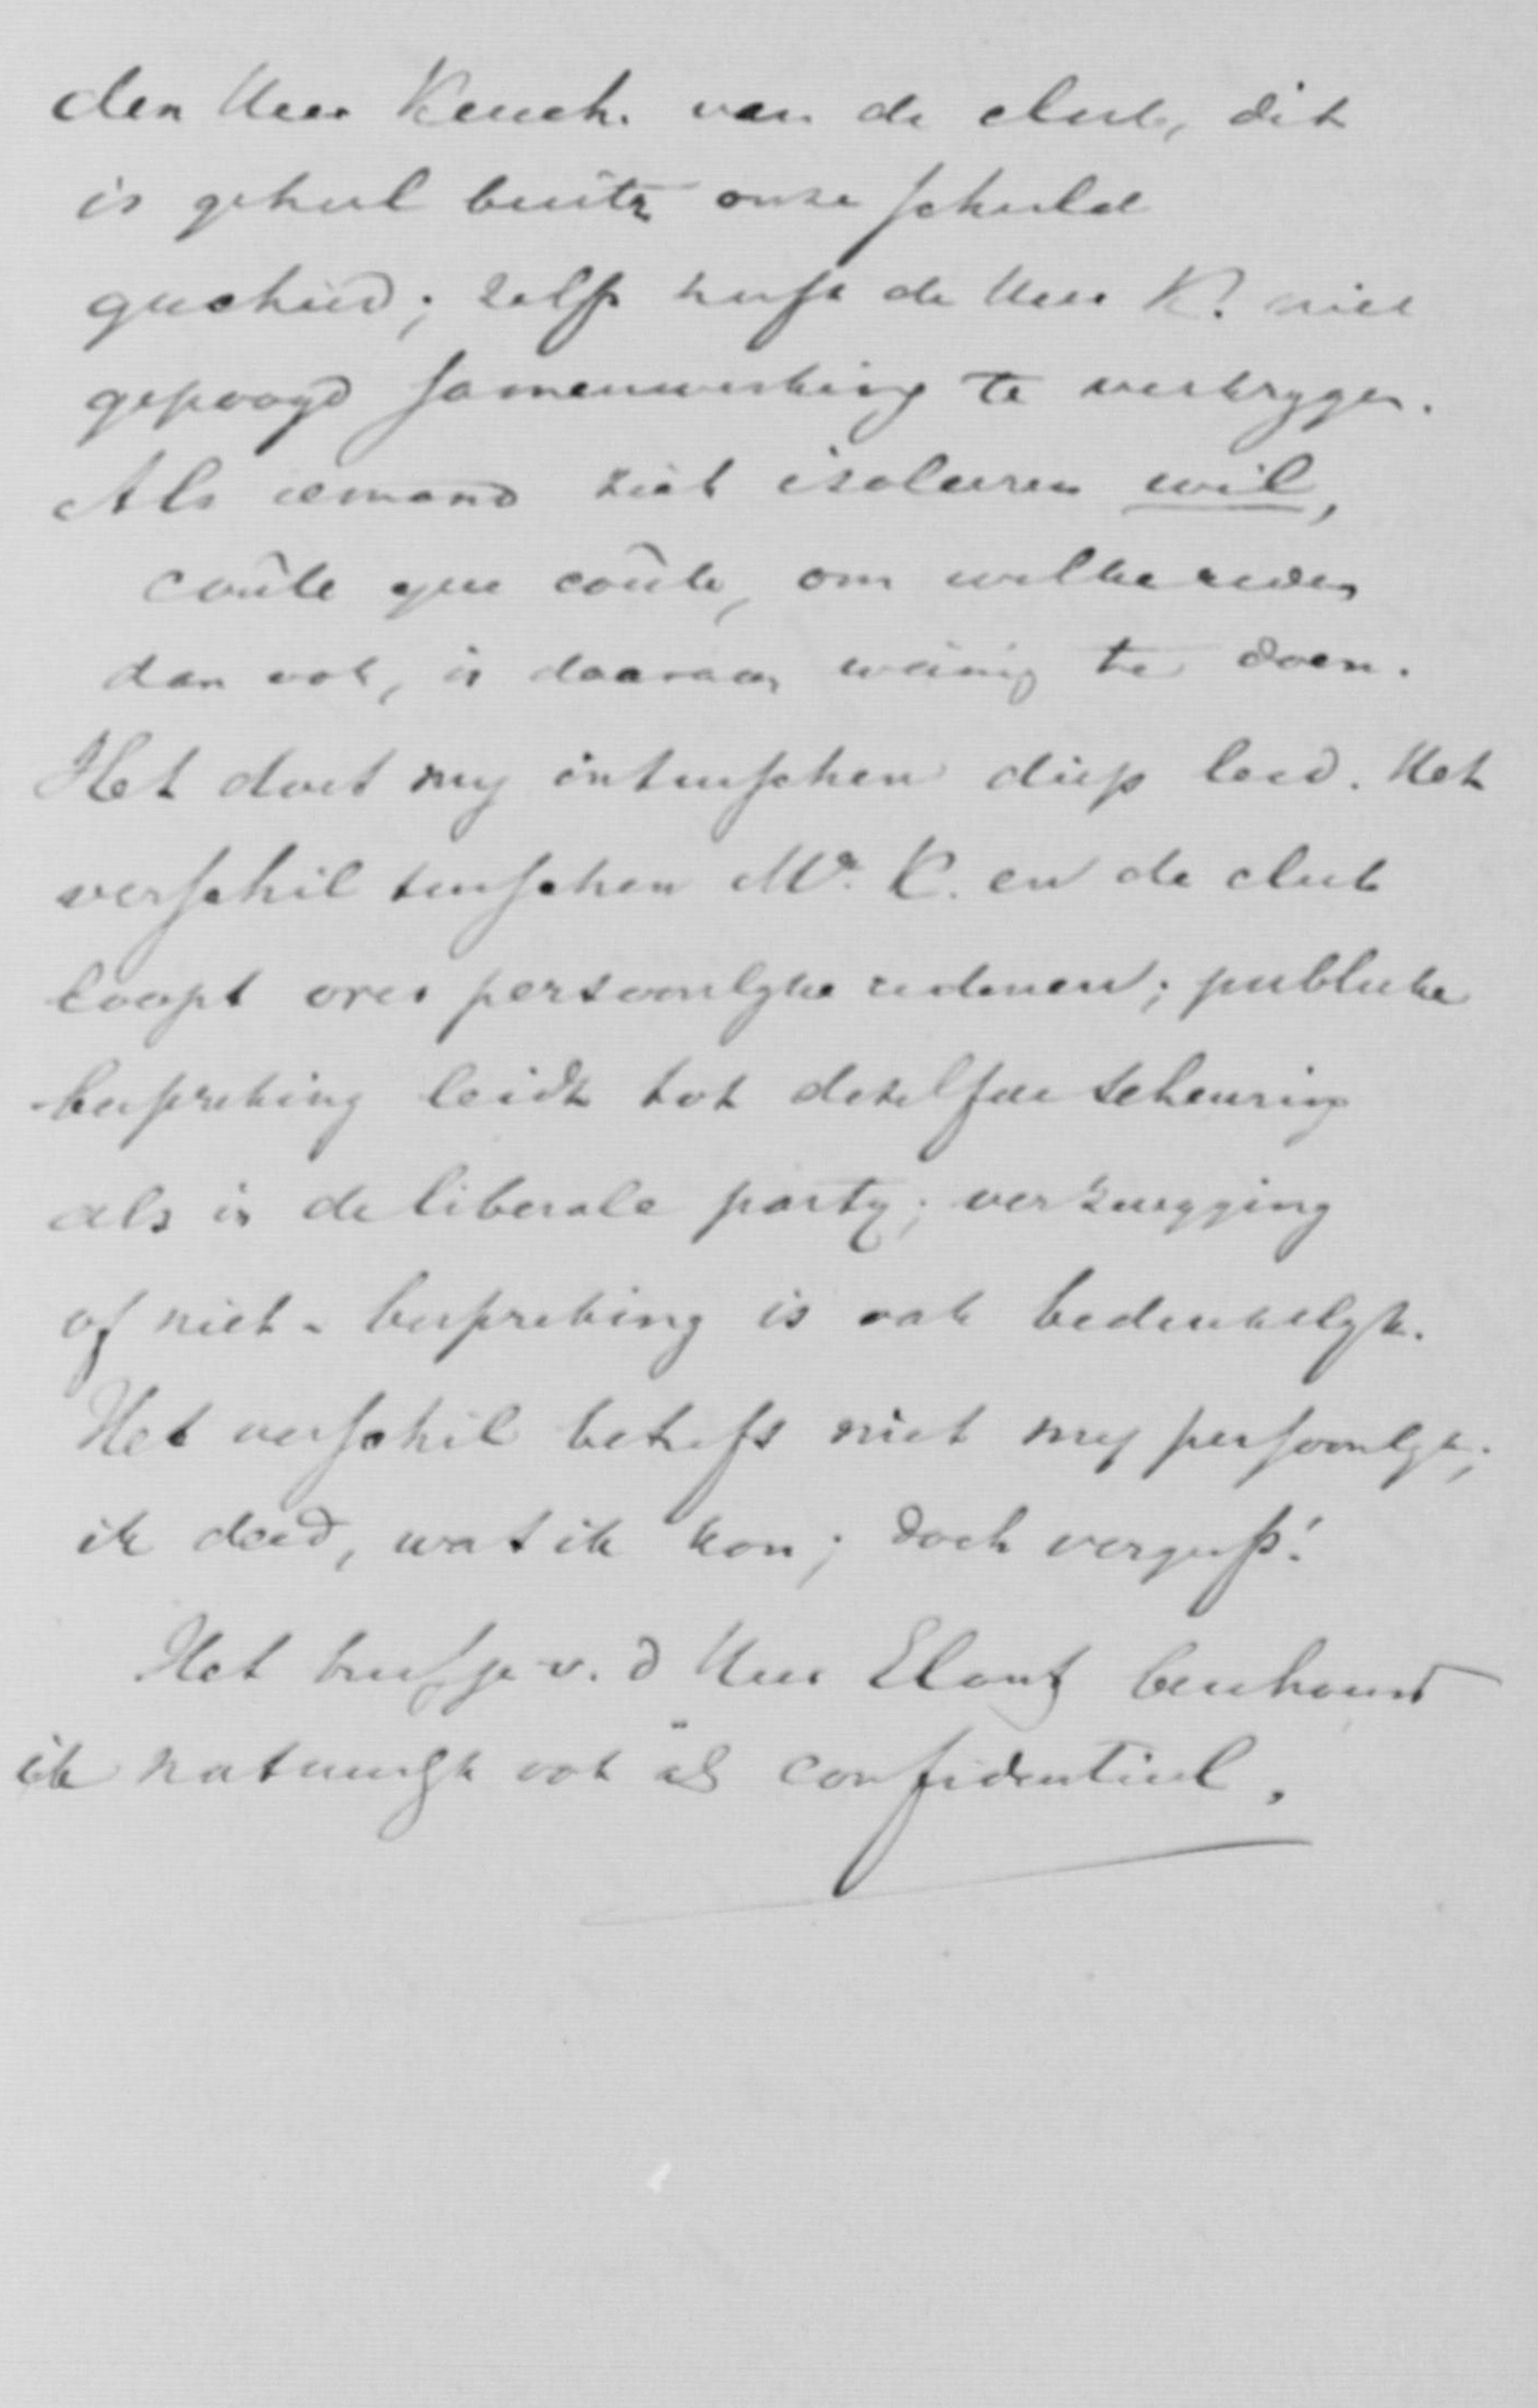 den Heer Keuch. van de club, dit
is geheel buiten onze schuld
geschied; zelfs heeft de Heer K. niet
gepoogd samenwerking te verkrygen.
Als iemand zich isoleeren wil,
coûte que coûte, om welke reden
dan ook, is daaraan weinig te doen.
Het doet my intusschen diep leed. Het
verschil tusschen Mr. K. en de club
loopt over persoonlyke redenen; publieke
bespreking leidt tot dezelfde scheuring
als in de liberale party; verzwyging
of niet-bespreking is ook bedenkelyk.
Het verschil betreft niet my persoonlyk;
ik deed, wat ik kon; doch vergeefs!
Het briefje v. d Heer Elout beschouw
ik natuurlyk ook als confidentieel.